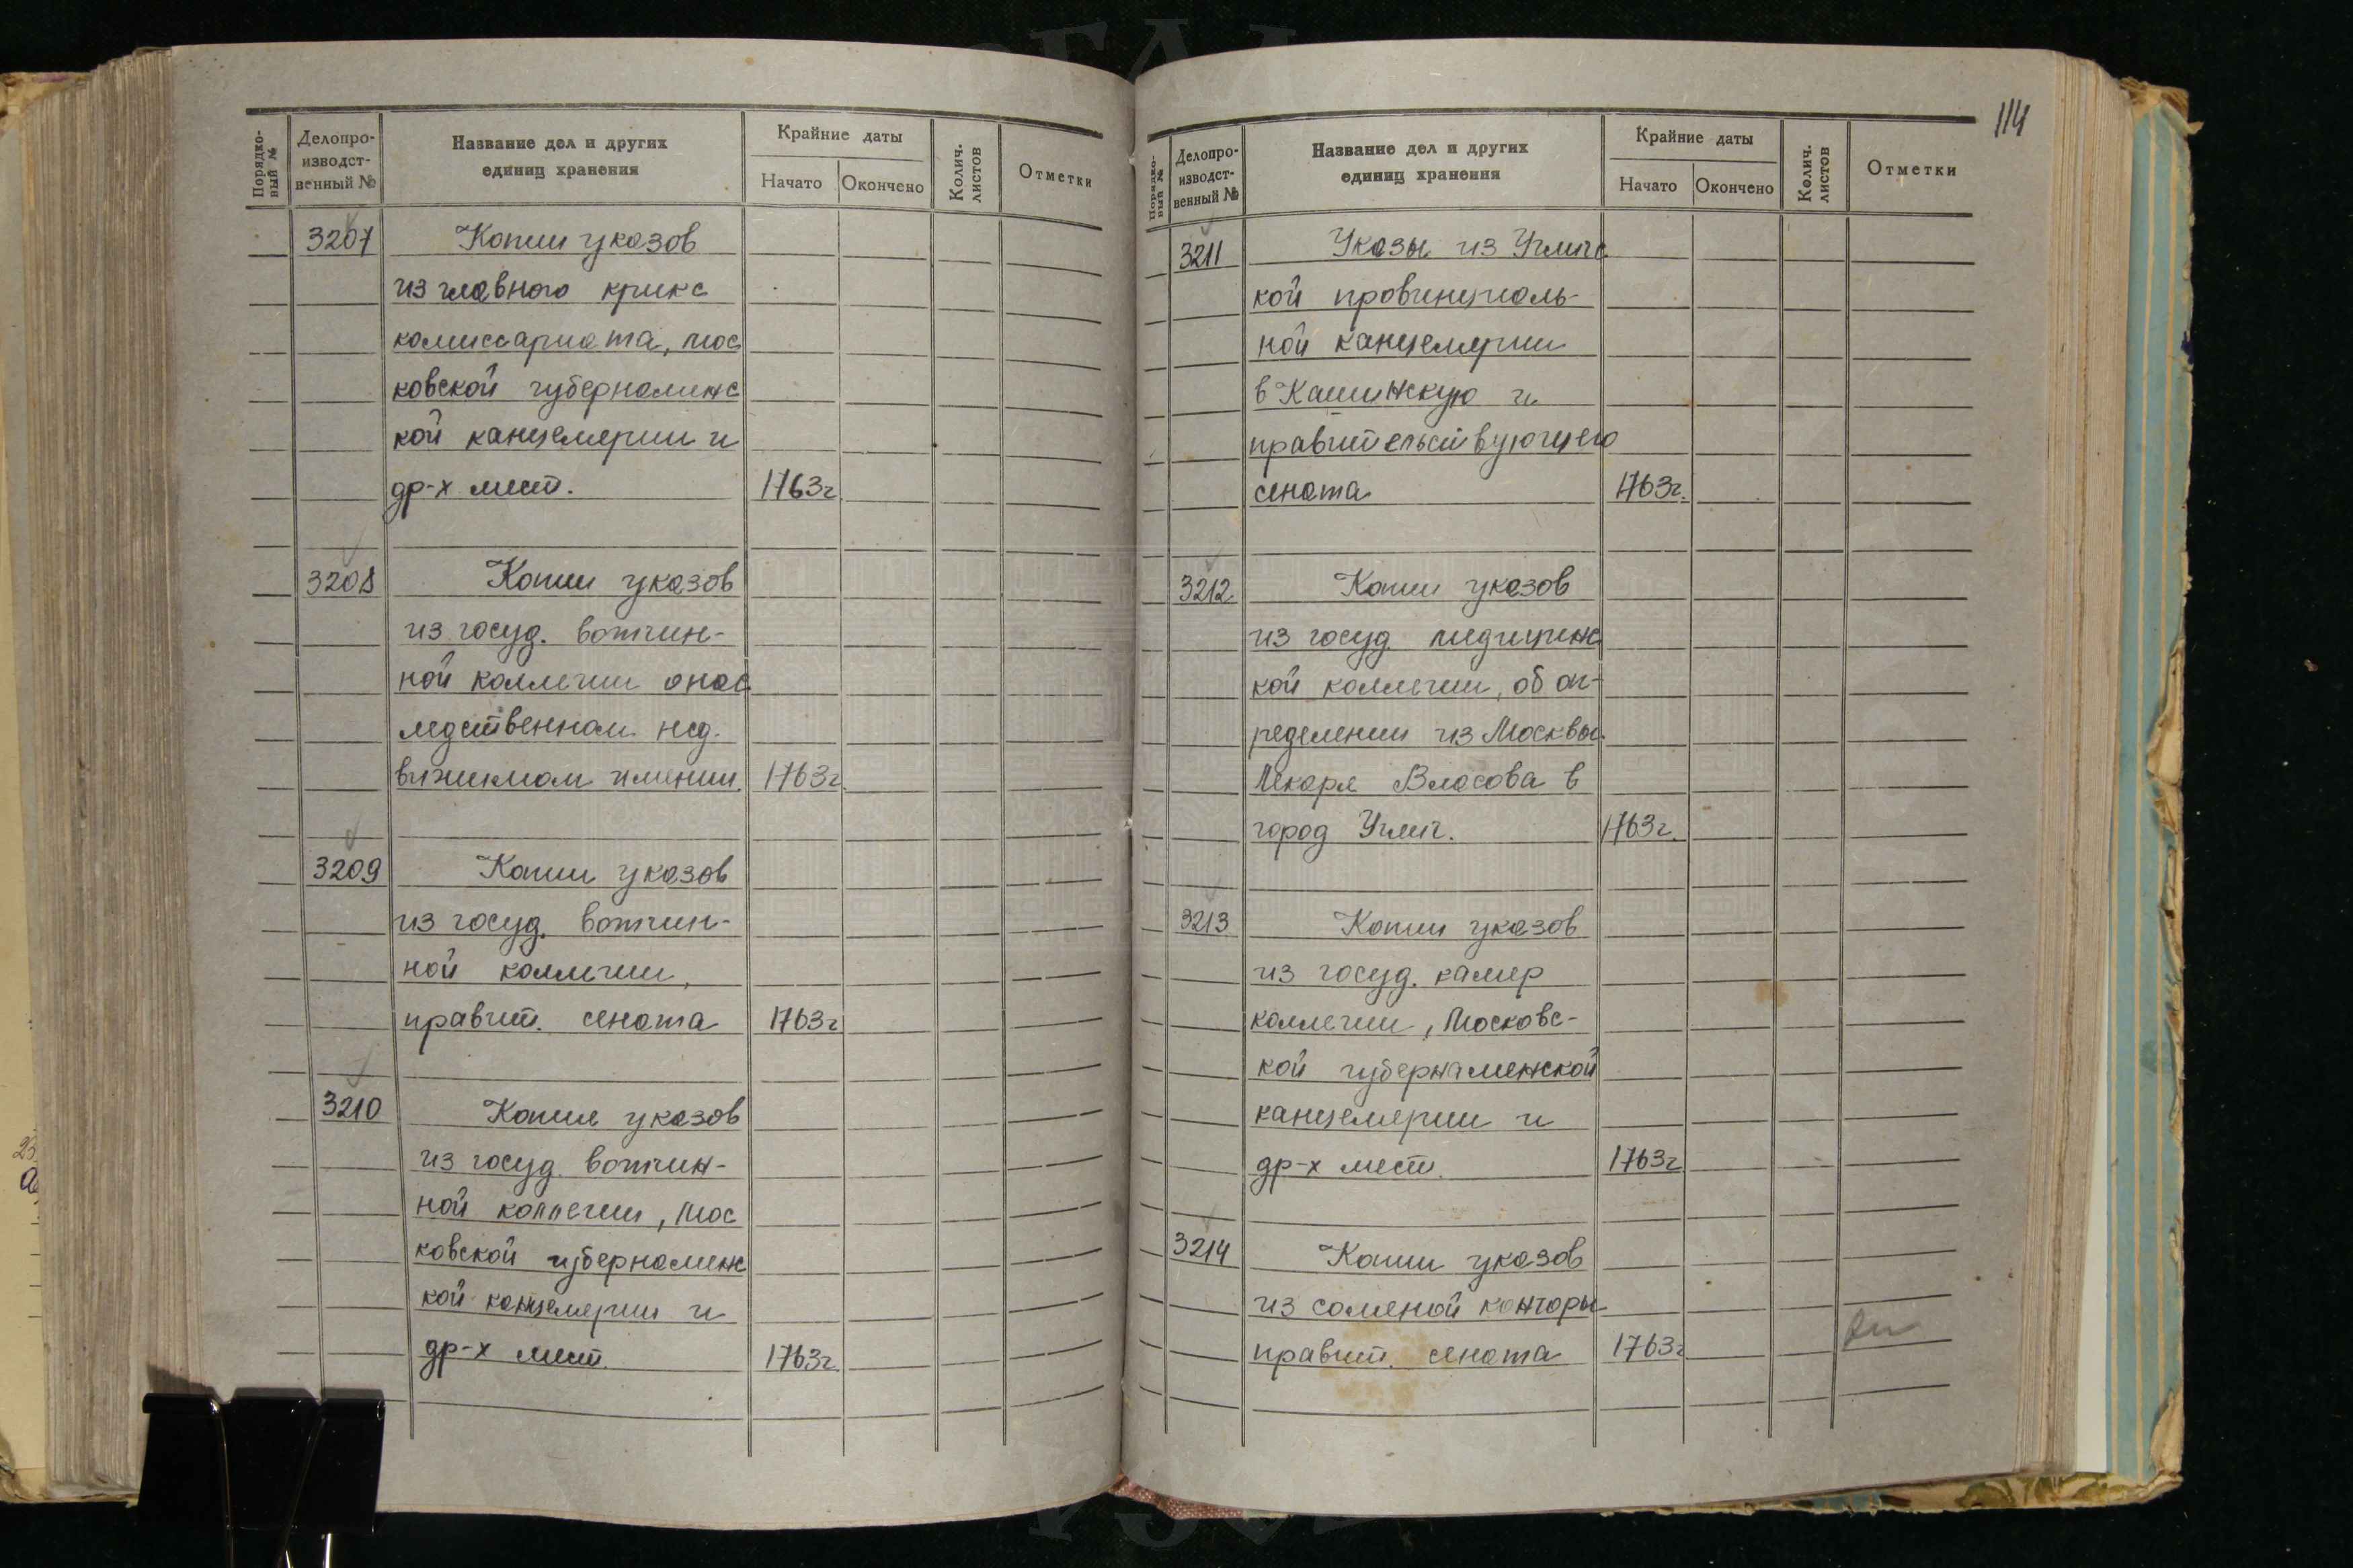 Порядко-
вый №
Делопро-
изводст-
венный №
Название дел и других
единиц хранения
Крайние даты
Начато
Окончено
Колич.
листов
Отметки
3207
Копии указов
из главного крикс
комиссариата, мос
ковской губернаминс
кой канцелярии и
др-х мест.
1763г.
3208
Копии указов
из госуд. вотчин-
ной коллегии о нас
ледственном нед.
вижимом имении.
1763г.
3209
Копии указов
из госуд. вотчин-
ной коллегии,
правит. сената
1763г
3210
Копия указов
из госуд. вотчин-
ной коллегии, мос
ковской губернаменс
кой канцелярии и
др-х мест.
1763г.
114
Порядко-
вый №
Делопро-
изводст-
венный №
Название дел и других
единиц хранения
Крайние даты
Начато
Окончено
Колич.
листов
Отметки
3211
Указы из Угличс
кой провинциаль-
ной канцелярии
в Кашинскую и
правительствующего
сената
1763г.
3212
Копии указов
из госуд. медицинс
кой коллегии, об оп-
ределении из Москвы
Лекаря Власова в
город Углич.
1763г.
3213
Копии указов
из госуд. камер
коллегии, Московс-
кой губернаменской
канцелярии и
др-х мест.
1763г
3214
Копии указов
из соляной конторы
правит. сената
1763г